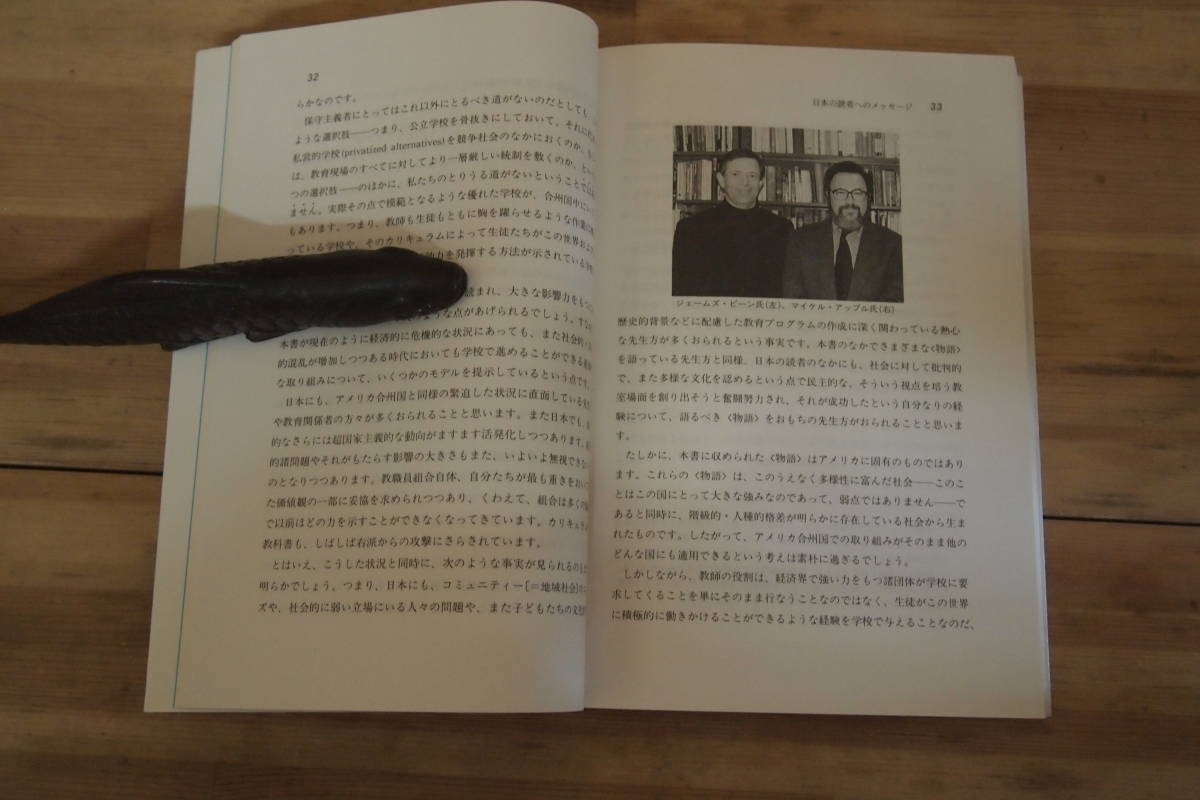 32
らかなのです。
保守主義者にとってはこれ以外にとるべき道がないのだとしても、
ような選択肢――つまり、公立学校を骨抜きにしておいて、それに
私営的学校(privatized alternatives)を競争社会のなかにおくのか、
は、教育現場のすべてに対してより一層厳しい統制を敷くのか、
つの選択肢――のほかに、私たちのとりうる道がないということでは
ません。実際その点で模範となるような優れた学校が、合州国中に
もあります。つまり、教師も生徒もともに胸を躍らせるような作業に
っている学校や、そのカリキュラムによって生徒たちがこの世界
力を発揮する方法が示されている
読まれ、大きな影響力をもつ
ような点があげられるでしょう。
本書が現在のように経済的に危機的な状況にあっても、また社会的
的混乱が増加しつつある時代においても学校で進めることができる
な取り組みについて、いくつかのモデルを提示しているという点です。
日本にも、アメリカ合州国と同様の緊迫した状況に直面している
や教育関係者の方々が多くおられることと思います。また日本でも、
的なさらには超国家主義的な動向がますます活発化しつつあります。
的諸問題やそれがもたらす影響の大きさもまた、いよいよ無視できない
のとなりつつあります。教職員組合自体、自分たちが最も重きをおいて
た価値観の一部に妥協を求められつつあり、くわえて、組合は多くの
で以前ほどの力を示すことができなくなってきています。カリキュラム
教科書も、しばしば右派からの攻撃にさらされています。
とはいえ、こうした状況と同時に、次のような事実が見られるのも
明らかでしょう。つまり、日本にも、コミュニティー[=地域社会]の
ズや、社会的に弱い立場にいる人々の問題や、また子どもたちの文化
日本の読者へのメッセージ 33
ジェームズ・ビーン氏(左)、マイケル・アップル氏(右)
歴史的背景などに配慮した教育プログラムの作成に深く関わっている熱心
な先生方が多くおられるという事実です。本書のなかでさまざまな〈物語〉
を語っている先生方と同様、日本の読者のなかにも、社会に対して批判的
で、また多様な文化を認めるという点で民主的な、そういう視点を培う教
室場面を創り出そうと奮闘努力され、それが成功したという自分なりの経
験について、語るべき〈物語〉をおもちの先生方がおられることと思いま
す。
たしかに、本書に収められた〈物語〉はアメリカに固有のものではあり
ます。これらの〈物語〉は、このうえなく多様性に富んだ社会――このこ
とはこの国にとって大きな強みなのであって、弱点ではありません――で
あると同時に、階級的・人種的格差が明らかに存在している社会から生ま
れたものです。したがって、アメリカ合州国での取り組みがそのまま他の
どんな国にも適用できるという考えは素朴に過ぎるでしょう。
しかしながら、教師の役割は、経済界で強い力をもつ諸団体が学校に要
求してくることを単にそのまま行なうことなのではなく、生徒がこの世界
に積極的に働きかけることができるような経験を学校で与えることなのだ、